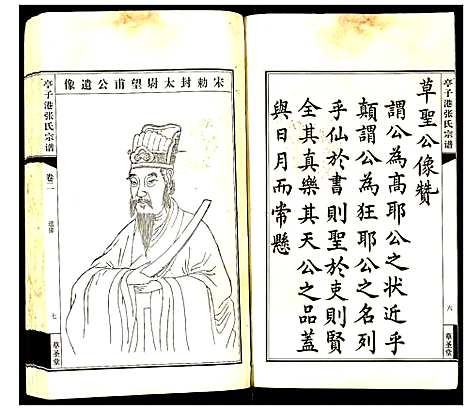 亭子港张氏宗谱
六
草圣堂
草聖公像贊
謂公為高耶公之状近乎
顛謂公為狂耶公之名列
乎仙於書則聖於吏則賢
全其真樂其天公之品蓋
與日月而常懸
宋勅封太尉望甫公遺像
亭子港张氏宗谱
卷二
遗像
七
草圣堂